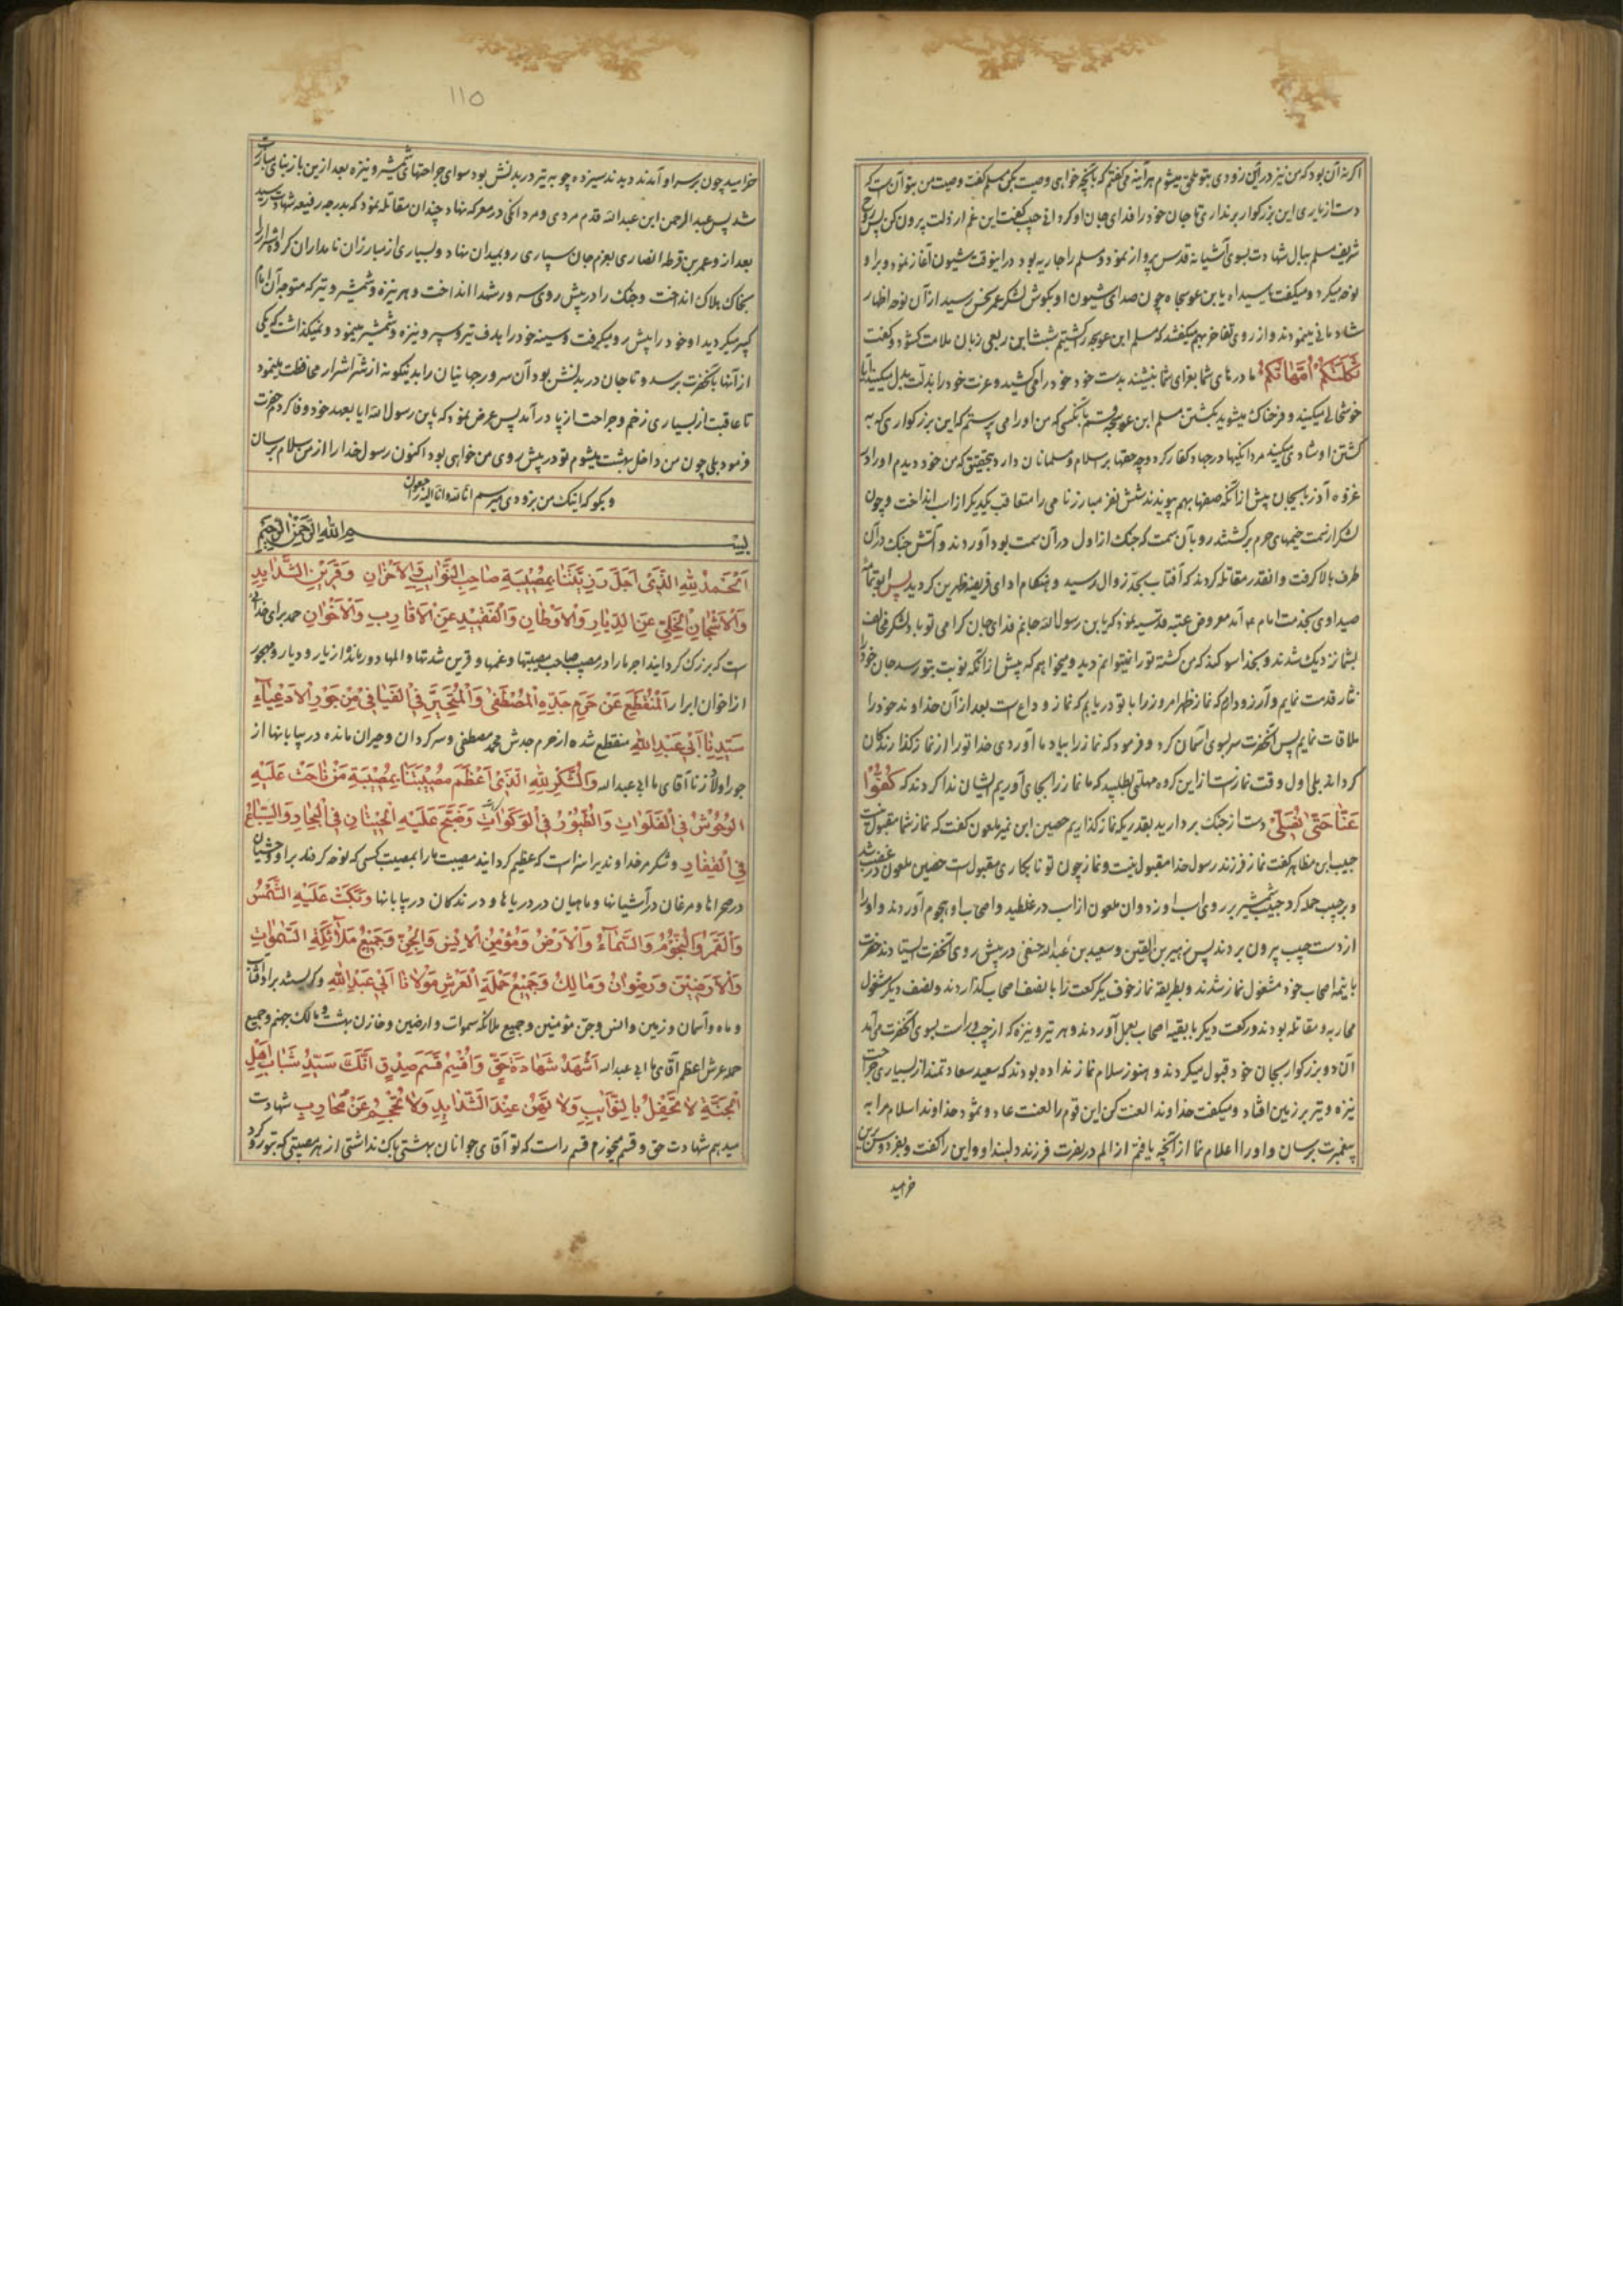 اکر نه آن بود که من نیز در این زودی بتو ملحق میشوم هر آینه می کفتم که بآنچه خواهی وصیت بکن مسلم کفت وصیت من بتو آن است که
دست از یاری این بزرکوار برنداری تا جان خود را فدای جان او کردانی حبیب کفت این غم از دلت بیرون کن پس روح
شریف مسلم ببال شهادت بسوی آشیانه قدس پرواز نمود و مسلم را جاریه بود در اینوقت شیون آغاز نمود و برا و
نوحه میکرد و میکفت یا سیداه یا بن عوسجاه چون صدای شیون او بکوش لشکر عمر نحس رسید از آن نوحه اظهار
شادمانی مینمودند و از روی تفاخر بهم میکفتند که مسلم ابن عوسجه را کشتیم شبث ابن ربعی زبان ملامت کشود و کفت
ثَكَلَتْكُمْ اُمَّهَاتُكُمْ مادرهای شما بعزای شما بنشیند بدست خود خود را می کشید و عزت خود را بذلت بدل میکنید آیا
خوشحالی میکنید و فرحناک میشوید بکشتن مسلم ابن عوسجه قسم بآنکسی که من او را می پرستم که این بزرکواری که به
کشتن او شادی میکنید مردانکیها در جهاد کفار کرد و چه حقها بر اسلام و مسلمانان دارد بتحقیق که من خود دیدم او را در
غزوه آذربایجان پیش از آنکه صفها بهم پیوندند شش نفر مبارز نامی را متعاقب یکدیکر از اسب انداخت و چون
لشکر از سمت خیمهای حرم برکشتند رو بآن سمت که جنک از اول در آن سمت بود آوردند و آتش جنک در آن
طرف بالا کرفت و آنقدر مقاتله کردند که آفتاب بحد زوال رسید و هنکام ادای فریضه ظهرین کردید پس ابو تمامه
صیداوی بخدمت امام ع آمد معروض عتبه قدسیه نمود که یا بن رسول الله جانم فدای جان کرامی تو باد لشکر مخالف
بشما نزدیک شدند و بخدا سوکند که من کشته تو را نمیتوانم دید و میخواهم که پیش از آنکه نوبت بتو رسد جان خود را
نثار قدمت نمایم و آرزو دارم که نماز ظهر امروز را با تو دریابم که نماز وداع است بعد از آن خداوند خود را
ملاقات نمایم پس آنحضرت سر بسوی آسمان کرد و فرمود که نماز را بیاد ما آوردی خدا تو را از نماز کذارندکان
کرداند بلی اول وقت نماز است از این کروه مهلتی بطلبید که ما نماز را بجای آوریم ایشان ندا کردند که كُفُّوْا
عَنَّا حَتّٰى نُصَلِّىْ دست از جنک بردارید بقدریکه نماز کذاریم حصین ابن نمیر ملعون کفت که نماز شما مقبول نیست
حبیب ابن مظاهر کفت نماز فرزند رسول خدا مقبول نیست و نماز چون تو نابکاری مقبول است حصین ملعون در غضب شد
و بر حبیب حمله کرد حبیب شمشیر بر روی اسب او زد و آن ملعون از اسب در غلطید و اصحاب او هجوم آوردند و او را
از دست حبیب بیرون بردند پس زهیر بن القین و سعید بن عبد الله حنفی در پیش روی آنحضرت ایستادند حضرت
با تتمه اصحاب خود مشغول نماز شدند و بطریقه نماز خوف یکرکعت را با نصف اصحاب کذاردند و نصف دیکر مشغول
محاربه و مقاتله بودند و رکعت دیکر با بقیه اصحاب بعمل آوردند و هر تیر و نیزه که از چپ و راست بسوی آنحضرت می آمد
آن دو بزرکوار بجان خود قبول میکردند و هنوز سلام نماز نداده بودند که سعید سعادتمند از بسیاری جراحت
نیزه و تیر بر زمین افتاد و میکفت خداوندا لعنت کن این قوم را لعنت عاد و ثمود خداوندا سلام مرا به
پیغمبرت برسان و او را اعلام نما از آنچه یافتم از الم در نصرت فرزند دلبند او و این را کفت و بفردوس برین
خرامید
۱۱۵
خرامید چون بر سر او آمدند دیدند سیزده چوبه تیر در بدنش بود سوای جراحتهای شمشیر و نیزه بعد از این باز بنای مبارزت
شد پس عبد الرحمن ابن عبد الله قدم مردی و مردانکی در معرکه نهاد چندان مقاتله نمود که بدرجه رفیعه شهادت رسید
بعد از و عمر بن قرطه انصاری بعزم جان سپاری رو بمیدان نهاد و بسیاری از مبارزان نامداران کروه اشرار را
بخاک هلاک انداخت و جنک را در پیش روی سرور شهدا انداخت و هر نیزه و شمشیر و تیر که متوجه آن امام
کبیر میکردید او خود را پیش رو میکرفت و سینه خود را هدف تیر و سپر و نیزه و شمشیر مینمود و نمیکذاشت که یکی
از آنها بآنحضرت برسد و تا جان در بدنش بود آن سرور جهانیان را بدینکونه از شر اشرار محافظت مینمود
تا عاقبت از بسیاری زخم و جراحت از پا در آمد پس عرض نمود که یا بن رسول الله ایا بعهد خود وفا کردم حضرت
فرمود بلی چون من داخل بهشت میشوم تو در پیش روی من خواهی بود اکنون رسول خدا را از من سلام برسان
و بکو که اینک من بزودی میرسم انا لله و انا الیه راجعون
بسم الله الرحمن الرحیم
اَلْحَمْدُ لِلّٰهِ الَّذِىْ اَجَلَّ رَزِيَّتَنَا بِمُصِيْبَةِ صَاحِبِ النَّوَائِبِ وَالْاَحْزَانِ وَقَرِيْنِ الشَّدَايِدِ
وَالْاَشْجَانِ الْخَلِىِّ عَنِ الدِّيَارِ وَالْاَوْطَانِ وَالْفَقِيْدِ عَنِ الْاَقَارِبِ وَالْاَخْوَانِ حمد برای خدائی
است که بزرک کردانید اجر ما را در مصیبت صاحب مصیبتها و غمها و قرین شدتها و المها دور مانده از یار و دیار و مهجور
از اخوان ابرار اَلْمُنْقَطِعِ عَنْ حَرَمِ جَدِّهِ الْمُصْطَفٰى وَالْمُتَحَيِّرِ فِى الْفَيَافِىْ مِنْ جَوْرِ الْاَدْعِيَآءِ
سَيِّدِنَا اَبِىْ عَبْدِ اللّٰهِ منقطع شده از حرم جدش محمد مصطفی و سرکردان و حیران مانده در بیابانها از
جور اولاد زنا آقای ما ابی عبد الله وَالشُّكْرُ لِلّٰهِ الَّذِىْ اَعْظَمَ مُصِيْبَتَنَا بِمُصِيْبَةِ مَنْ نَاحَتْ عَلَيْهِ
الْوُحُوْشُ فِى الْفَلَوَاتِ وَالطُّيُوْرُ فِى الْوَكَوَاتِ وَضَجَّ عَلَيْهِ الْحِيْتَانِ فِى الْبِحَارِ وَالسِّبَاعُ
فِى الْقِفَارِ و شکر مر خداوندیرا سزاست که عظیم کردانید مصیبت ما را بمصیبت کسی که نوحه کردند بر او وحشیان
در صحراها و مرغان در آشیانها و ماهیان در دریاها و درندکان در بیابانها وَبَكَتْ عَلَيْهِ الشَّمْسُ
وَالْقَمَرُ وَالنُّجُوْمُ وَالسَّمَآءُ وَالْاَرْضُ وَمُؤْمِنُ الْاِنْسِ وَالْجِنِّ وَجَمِيْعُ مَلَآئِكَةِ السَّمٰوَاتِ
وَالْاَرَضِيْنَ وَرِضْوَانُ وَمَالِكُ وَجَمِيْعُ حَمَلَةِ الْعَرْشِ مَوْلَانَا اَبِىْ عَبْدِ اللّٰهِ و کریستند بر او آفتاب
و ماه و آسمان و زمین و انس و جن مؤمنین و جمیع ملائکه سموات و ارضین و خازن بهشت و مالک جهنم و جمیع
حمله عرش اعظم آقای ما ابی عبد الله اَشْهَدُ شَهَادَةَ حَقٍّ وَاُقْسِمُ قَسَمَ صِدْقٍ اَنَّكَ سَيِّدُ شَبَابِ اَهْلِ
الْجَنَّةِ لَا تَحْفِلُ بِالنَّوَآئِبِ وَلَا تَهِنُ عِنْدَ الشَّدَايِدِ وَلَا تُحْجِمُ عَنْ مُحَارِبٍ شهادت
میدهم شهادت حق و قسم میخورم قسم راست که تو آقای جوانان بهشتی باک نداشتی از هر مصیبتی که بتو رو کرد